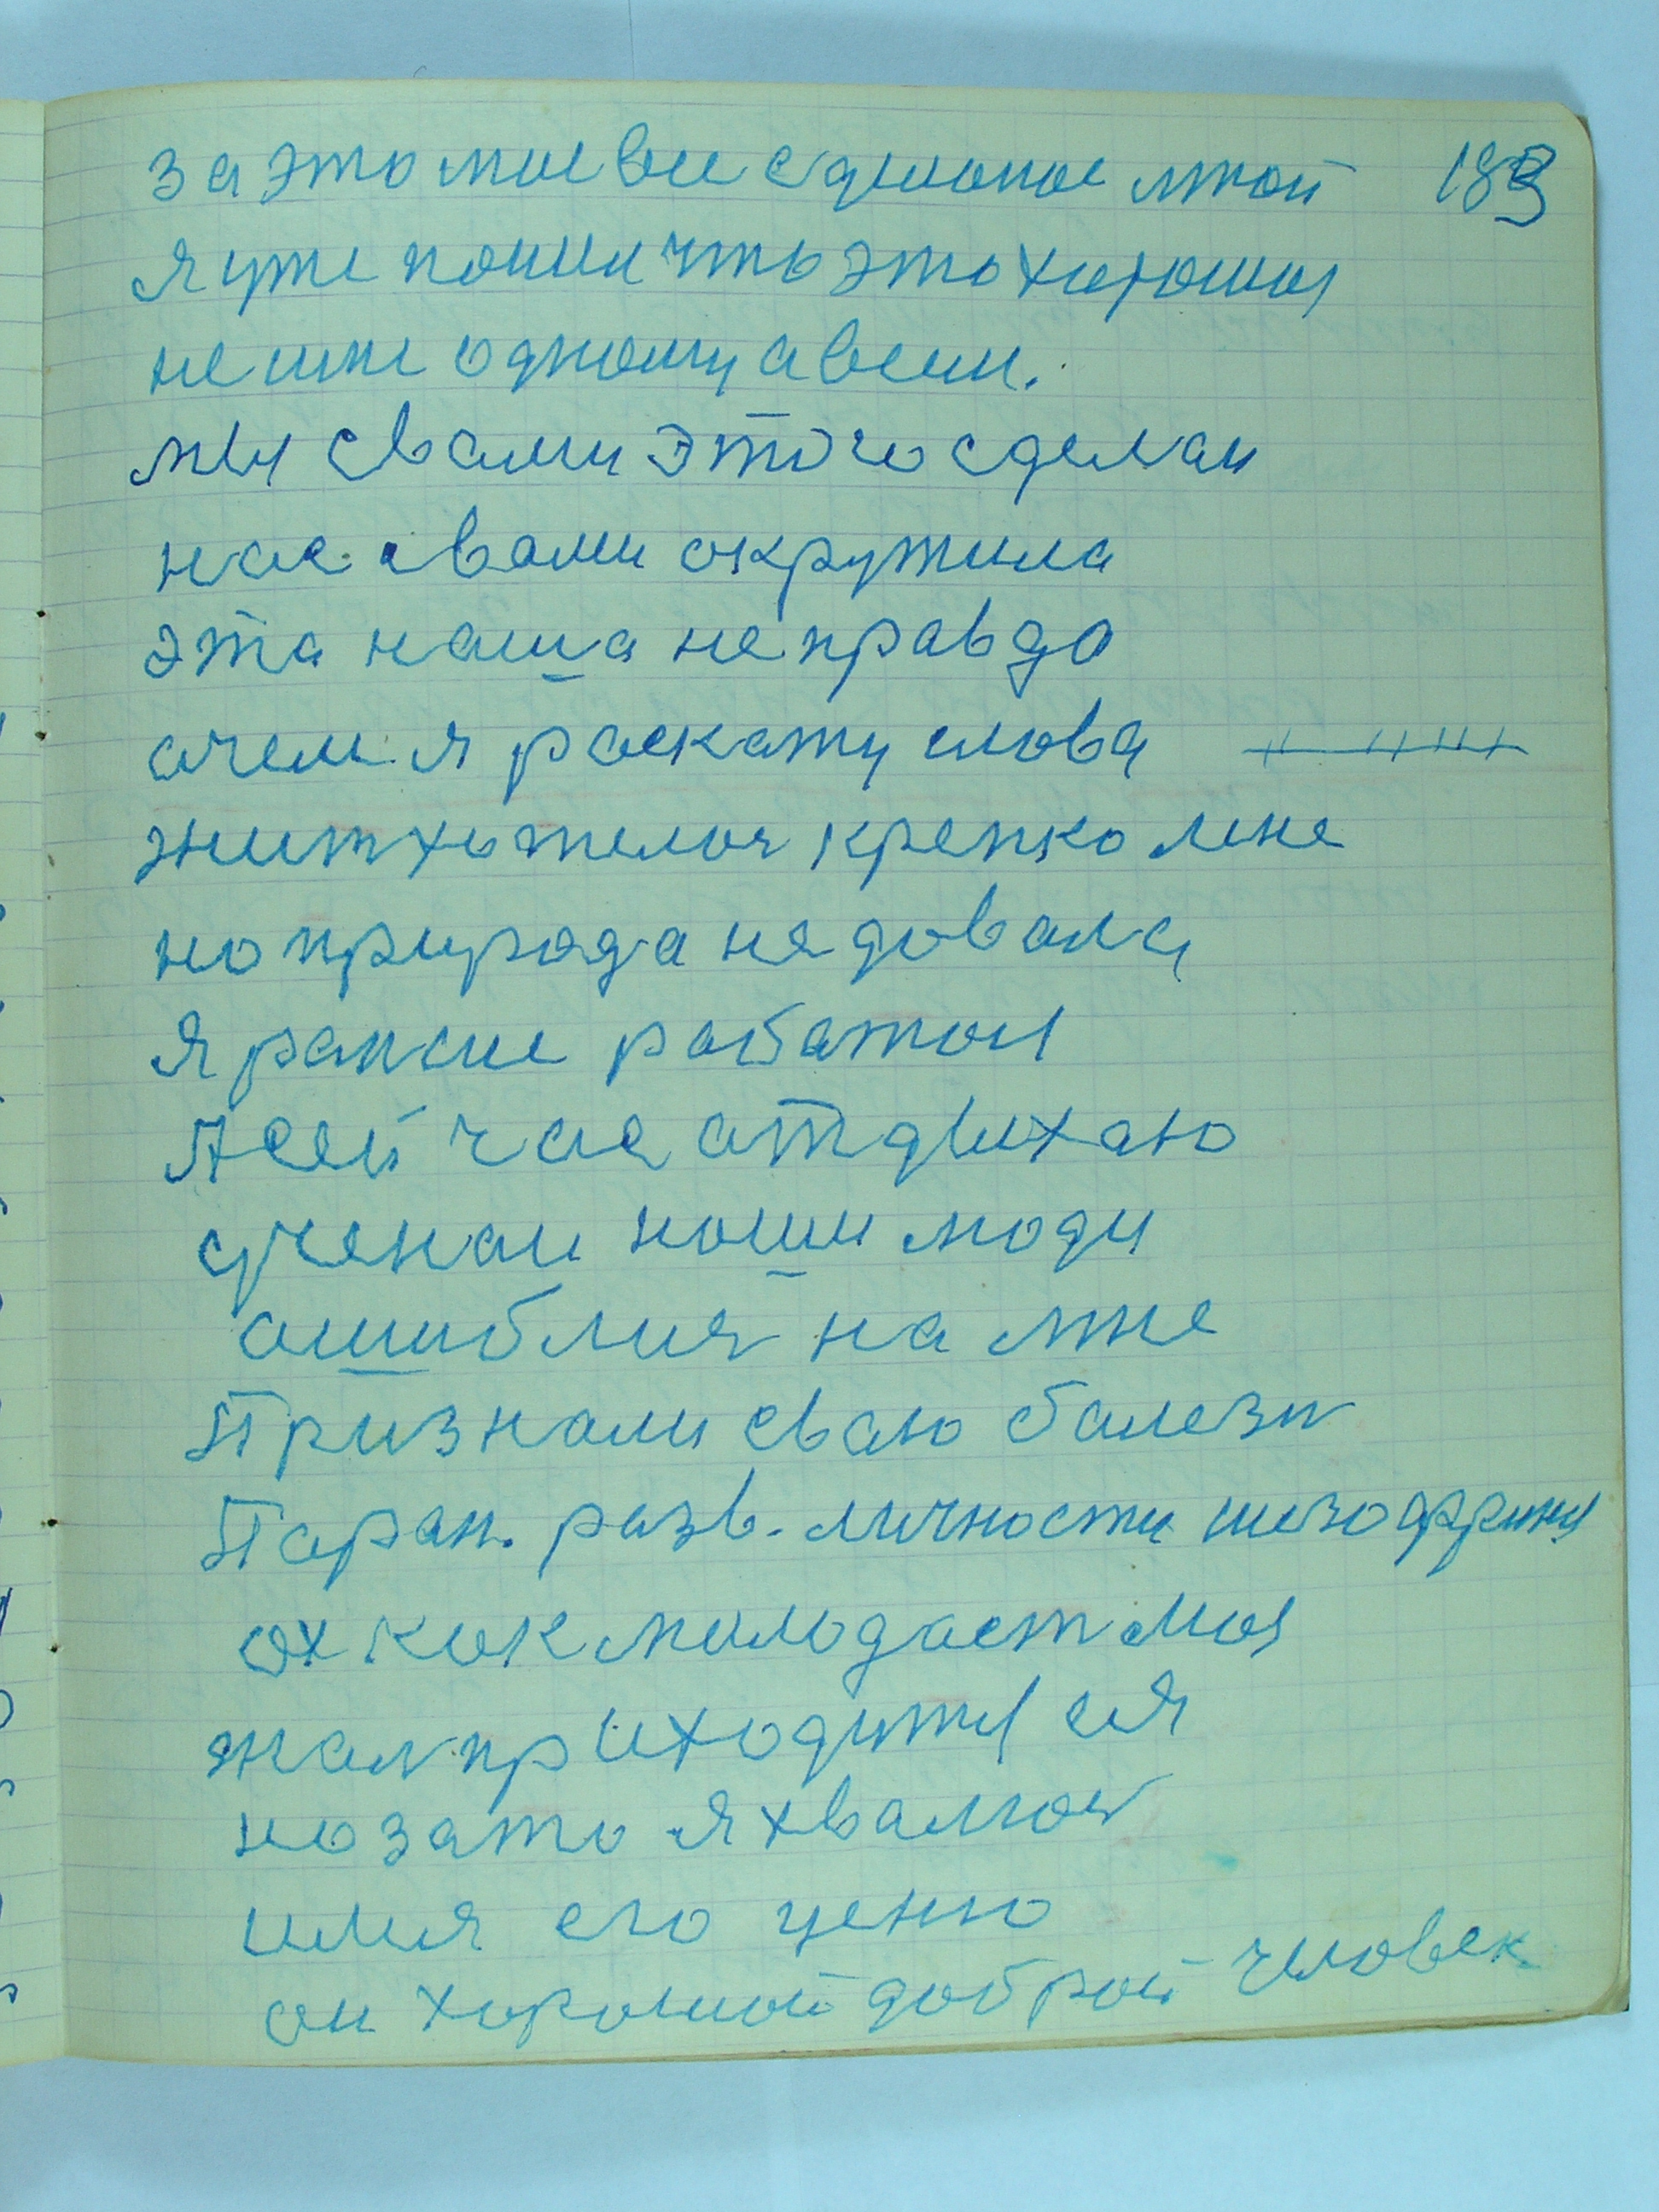 за это мне все сделоное мной 183
я уже понил что это хорошоя
не мне одному а всем.
мы с вами этого сделаи
нас свами окружила
эта наша не правда
о чем я роскажу слова
жит хотелоя крепко мне
но природа не довала
я ранше работол
А сей час отдыхаю
ученаи наши люди
ошиблися на мне
Признали сваю балезн
Паран. разв. личности шизофрения
ох как молодаст моя
жал приходитця ея
но зато я хвалюся
имя его ценю
он хорошой доброй человек